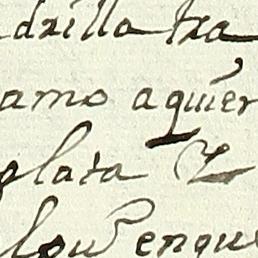 drilla tra
amo aquier
plata Y
lou en que